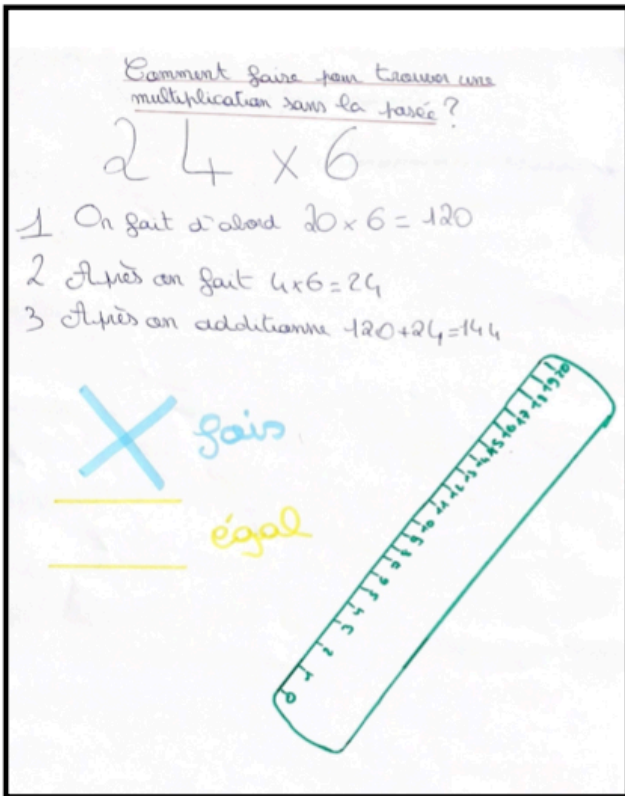 Comment faire pour trouver une
multiplication sans la posée ?
24 x 6
1 On fait d'abord 20 x 6 = 120
2 Après on fait 4x6=24
3 Après on additionne 120+24=144
fois
égal
0 1 2 3 4 5 6 7 8 9 10 11 12 13 14 15 16 17 18 19 20